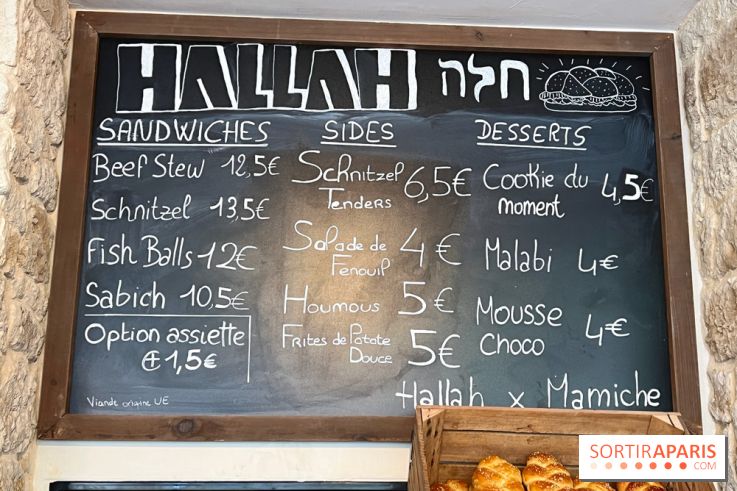 HALLAH חלה
SANDWICHES
Beef Stew 12,5€
Schnitzel 13,5€
Fish Balls 12€
Sabich 10,5€
Option assiette
+ 1,5€
Viande origine UE
SIDES
Schnitzel
Tenders 6,5€
Salade de
Fenouil 4€
Houmous 5€
Frites de Patate
Douce 5€
DESSERTS
Cookie du
moment 4,5€
Malabi 4€
Mousse
Choco 4€
Hallah x Mamiche
SORTIRAPARIS
.COM